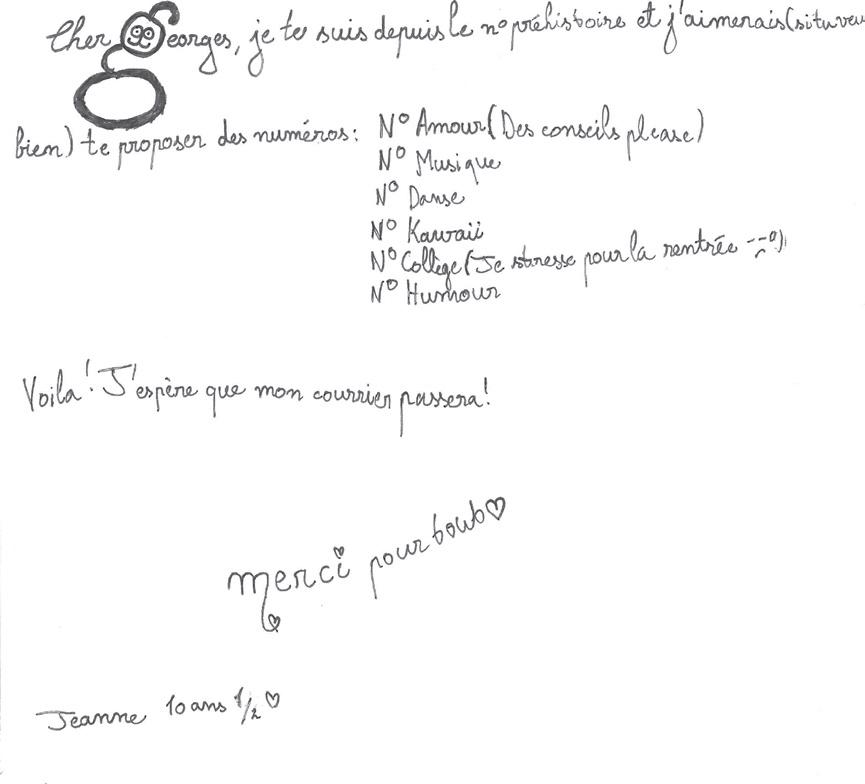 Cher Georges, je te suis depuis le n° préhistoire et j'aimerais (si tu veux
bien) te proposer des numéros : N° Amour (Des conseils please)
N° Musique
N° Danse
N° Kawaii
N° Collège (Je stresse pour la rentrée
N° Humour
Voila ! J'espère que mon courrier passera !
merci pour tout ♡
Jeanne 10 ans 1/2 ♡